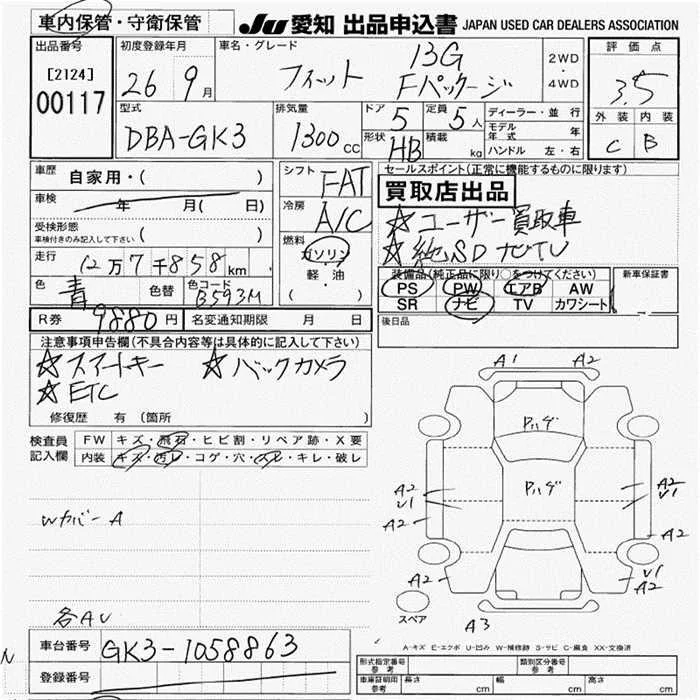 車内保管・守衛保管
JU 愛知 出品申込書 JAPAN USED CAR DEALERS ASSOCIATION
出品番号
[2124]
00117
初度登録年月
26 9月
車名・グレード
フィット 13G Fパッケージ
2WD・4WD
評価点
3.5
外装 内装
C B
型式
DBA-GK3
排気量
1300cc
ドア 5
形状 HB
定員 5人
積載 kg
ディーラー・並行
モデル年式 年
ハンドル 左・右
車歴 自家用・( )
車検 年 月( 日)
受検形態
車検付きのみ記入して下さい ( )
走行 12万7千858km
色 青 色替 色コード B593M
シフト FAT
冷房 A/C
燃料 ガソリン
軽・油
( )
セールスポイント(正常に機能するものに限ります)
買取店出品
☆ユーザー買取車
☆純SDナビTV
装備品(純正品に限り○をつけてください)
PS PW エアB AW
SR ナビ TV カワシート
新車保証書
後日品
R券 9880円 名変通知期限 月 日
注意事項申告欄(不具合内容等は具体的に記入して下さい)
☆スマートキー ☆バックカメラ
☆ETC
修復歴 有 (箇所 )
検査員記入欄
FW キズ・飛石・ヒビ割・リペア跡・X要
内装 キズ・汚レ・コゲ・穴・スレ・キレ・破レ
Wカバー A
各AU
A1 A2
Pハゲ
Pハゲ
A2
U1
A2
A2
U1
A2
A2
U1
A2
スペア
A3
A-キズ E-エクボ U-凹み W-補修跡 S-サビ C-腐食 XX-交換済
車台番号 GK3-1058863
登録番号
形式指定番号 参考
類別区分番号 参考
車庫証明用 参考 長さ cm 幅 cm 高さ cm